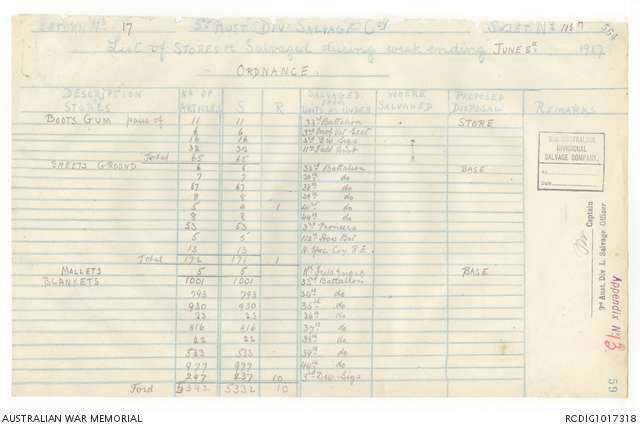 RETURN No 17 3rd AUST. DIV. SALVAGE Coy SHEET No 554
List of STORES Salvaged during week ending JUNE 8th 1917
ORDNANCE.
DESCRIPTION STORES No OF ARTICLES S R SALVAGED from UNITS as UNDER WHERE SALVAGED PROPOSED DISPOSAL REMARKS
BOOTS GUM pairs of 11 11 33rd Battalion STORE
6 6
16 16 3rd Div Sigs
32 32 11th Field
Total 65 65
SHEETS GROUND 6 6 33rd Battalion BASE
7 7 do
67 67 38th do
8 8 39th do
5 4 1 do
8 8 44th do
53 53 3rd Pioneers
5 5
13 13 Coy R.E.
Total 172 171 1
MALLETS 5 5 BASE
BLANKETS 1001 1001 33rd Battalion
793 793 do
930 930 35th do
23 23 36th do
816 816 37th do
22 22 38th do
533 533 39th do
977 977 40th do
247 237 10 3rd Div Sigs
Total 5342 5332 10
3RD AUSTRALIAN
DIVISIONAL
SALVAGE COMPANY.
No.
Date
Captain
3rd Aust. Div l. Salvage Officer
Appendix No 13
59
AUSTRALIAN WAR MEMORIAL RCDIG1017318